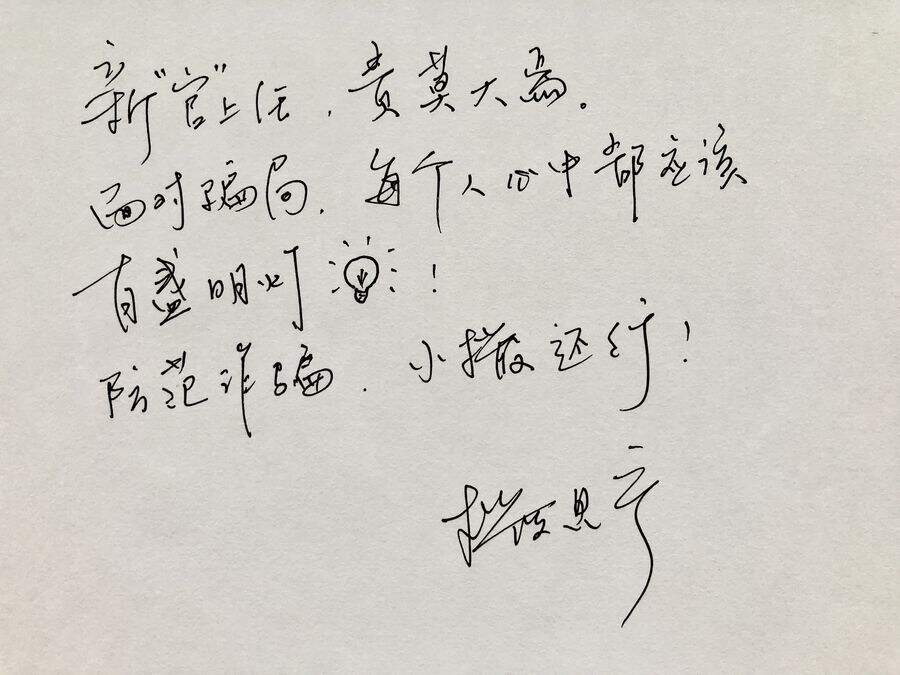 新"官"上任，责莫大焉。
面对骗局，每个人心中都应该
有盏明灯！
防范诈骗，小撒还行！
撒贝宁